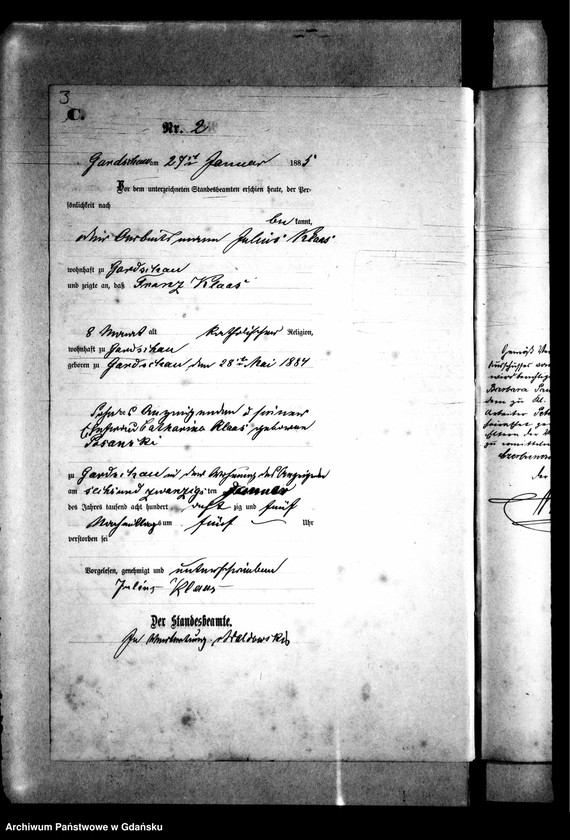 3
C.
Nr. 2
Gardschau am 27ten Januar 1885
Vor dem unterzeichneten Standesbeamten erschien heute, der Per-
sönlichkeit nach
bekannt,
der Arbeitsmann Julius Klaas
wohnhaft zu Gardschau
und zeigte an, daß Franz Klaas
8 Monat alt katholischer Religion,
wohnhaft zu Gardschau
geboren zu Gardschau den 28ten Mai 1884
Sohn des Anzeigenden u seiner
Ehefrau Catharina Klaas geborene
zu Gardschau in der Wohnung des Anzeigers
am sechsund zwanzigsten Januar
des Jahres tausend acht hundert achtzig und fünf
Nachmittags um fünf Uhr
verstorben sei
Vorgelesen, genehmigt und unterschrieben
Julius Klaas
Der Standesbeamte.
In Vertretung
Gemäß
Ausschusses
Barbara
dem zu Kl.
Arbeiter
der
Archiwum Państwowe w Gdańsku